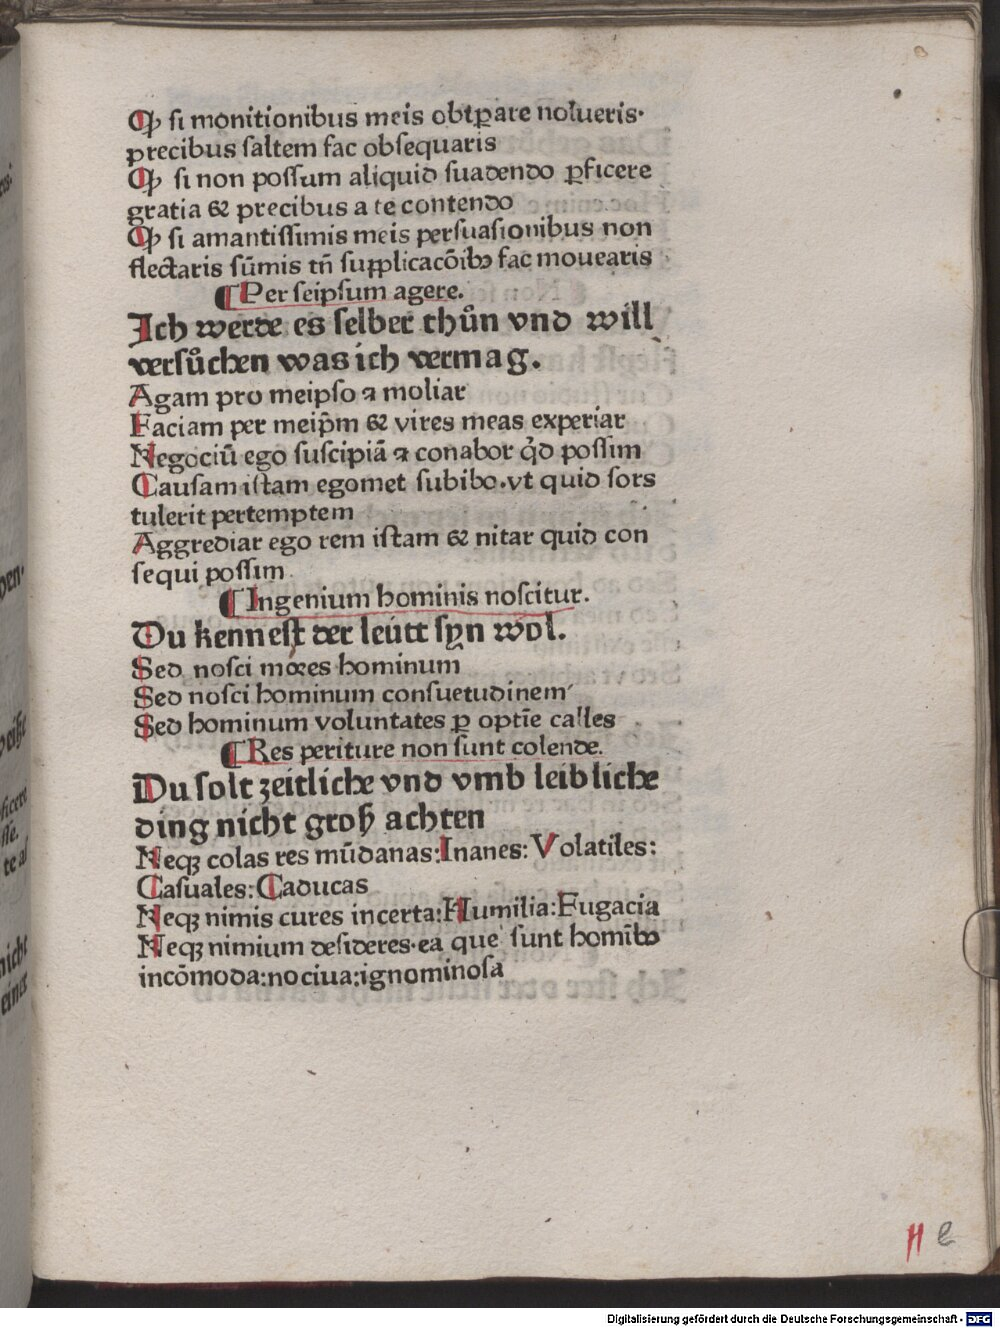 Qꝫ si monitionibus meis obtꝑare nolueris·
precibus saltem fac obsequaris
Qꝫ si non possum aliquid suadendo ꝑficere
gratia & precibus a te contendo
Qꝫ si amantissimis meis persuasionibus non
flectaris sūmis tñ supplicacōibꝫ fac mouearis
¶ Per seipsum agere.
Ich werde es selber thůn vnd will
versůchen was ich vermag.
Agam pro meipso ⁊ moliar
Faciam per meip̄m & vires meas experiar
Negociū ego suscipiā ⁊ conabor q̇d possim
Causam istam egomet subibo.vt quid sors
tulerit pertemptem
Aggrediar ego rem istam & nitar quid con
sequi possim
¶ Ingenium hominis noscitur.
Du kennest der leütt syn wol.
Sed nosci mores hominum
Sed nosci hominum consuetudinem
Sed hominum voluntates ꝑ optīe calles
¶ Res periture non sunt colende.
Du solt zeitliche vnd vmb leibliche
ding nicht groß achten
Neqꝫ colas res mūdanas:Inanes:Volatiles:
Casuales:Caducas
Neqꝫ nimis cures incerta:Humilia:Fugacia
Neqꝫ nimium desideres·ea que sunt homībꝫ
incōmoda:nociua:ignominosa
Digitalisierung gefördert durch die Deutsche Forschungsgemeinschaft - DFG